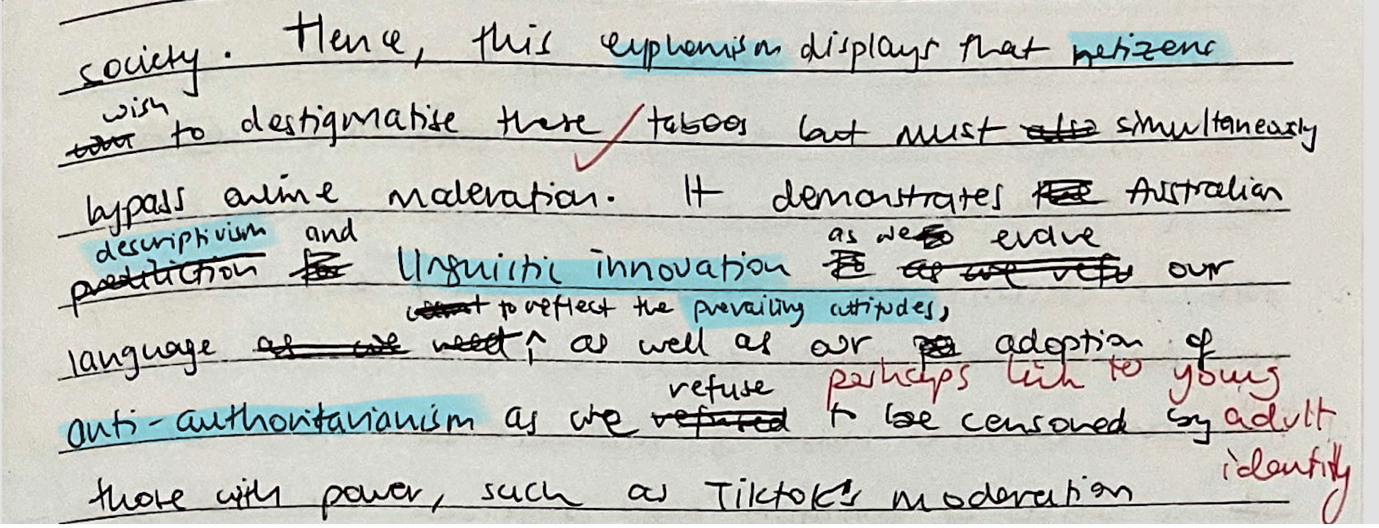 society. Hence, this euphemism displays that netizens
wish
to destigmatise these taboos but must simultaneously
bypass online moderation. It demonstrates Australian
descriptivism and as we evolve
linguistic innovation our
to reflect the prevailing attitudes,
language ↑ as well as our adoption of
refuse perhaps link to young
anti-authoritarianism as we to be censored by adult
identity
those with power, such as TikTok's moderation